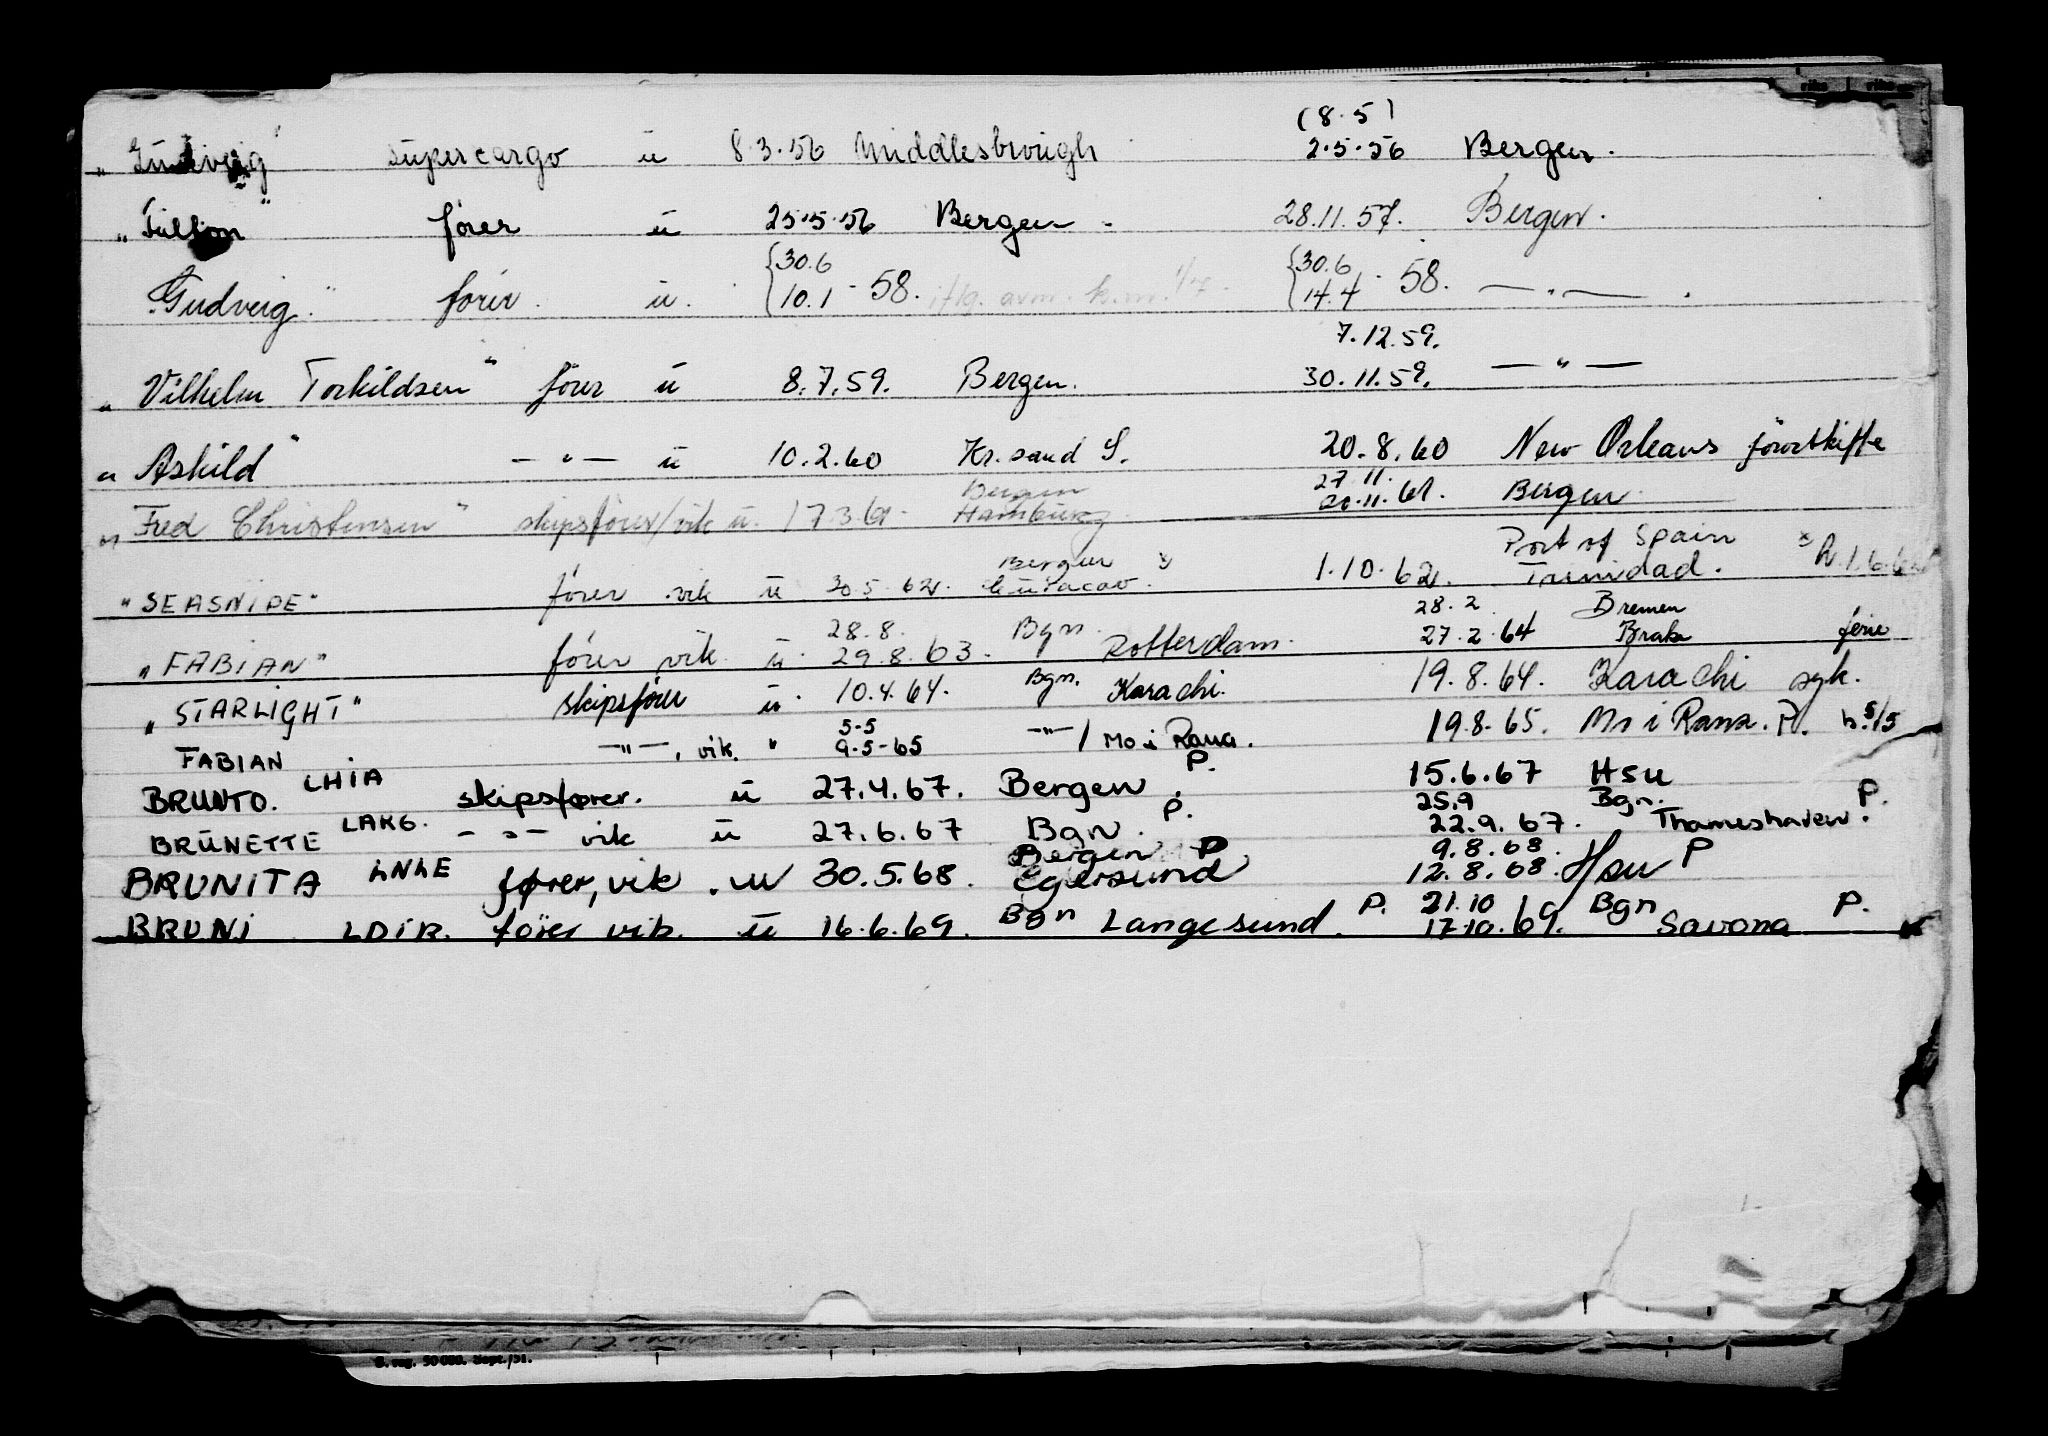 (8.5)
"Gudveig" supercargo u 8.3.56 Middlesbrough 2.5.56 Bergen.
" " fører u 25.5.56 Bergen - 28.11.57. Bergen.
{30.6 {30.6
"Gudveig." fører. u. 10.1 - 58. 14.4 - 58. — " — .
7.12.59.
"Vilhelm Torkildsen" fører u 8.7.59. Bergen. 30.11.59. — " —
"Askild" — " — u 10.2.60 Kr.sand S. 20.8.60 New Orleans
Bergen 27.11.
"Fred Christensen" skipsfører/vik u. 17.3.61. Hamburg 20.11.61. Bergen
Bergen Port of Spain
"SEASNIPE" fører vik u 30.5.62. Curacao. 1.10.62. Trinidad.
28.8. Bgn. 28.2 Bremen
"FABIAN" fører vik u. 29.8.63. Rotterdam. 27.2.64 Brake ferie
"STARLIGHT" skipsfører u. 10.4.64. Bgn. Karachi. 19.8.64. Karachi syk.
5-5
FABIAN —"—, vik. " 9-5-65 —"—/ Mo i Rana. 19.8.65. Mo i Rana. P. h.5/5
BRUNTO. LHIA skipsfører. u 27.4.67. Bergen. P. 15.6.67 Hsu
25.9 Bgn. P.
BRUNETTE LAKG. — " — vik u 27.6.67 Bgn. P. 22.9.67. Thameshaven.
Bergen P 9.8.68.
BRUNITA LNLE fører, vik. u 30.5.68. Egersund 12.8.68. Hsu P
21.10 Bgn P.
BRUNI LDIR. fører vik. u 16.6.69. Bgn Langesund. P. 17.10.69. Savona
B. reg. 50 000. Sept./51.